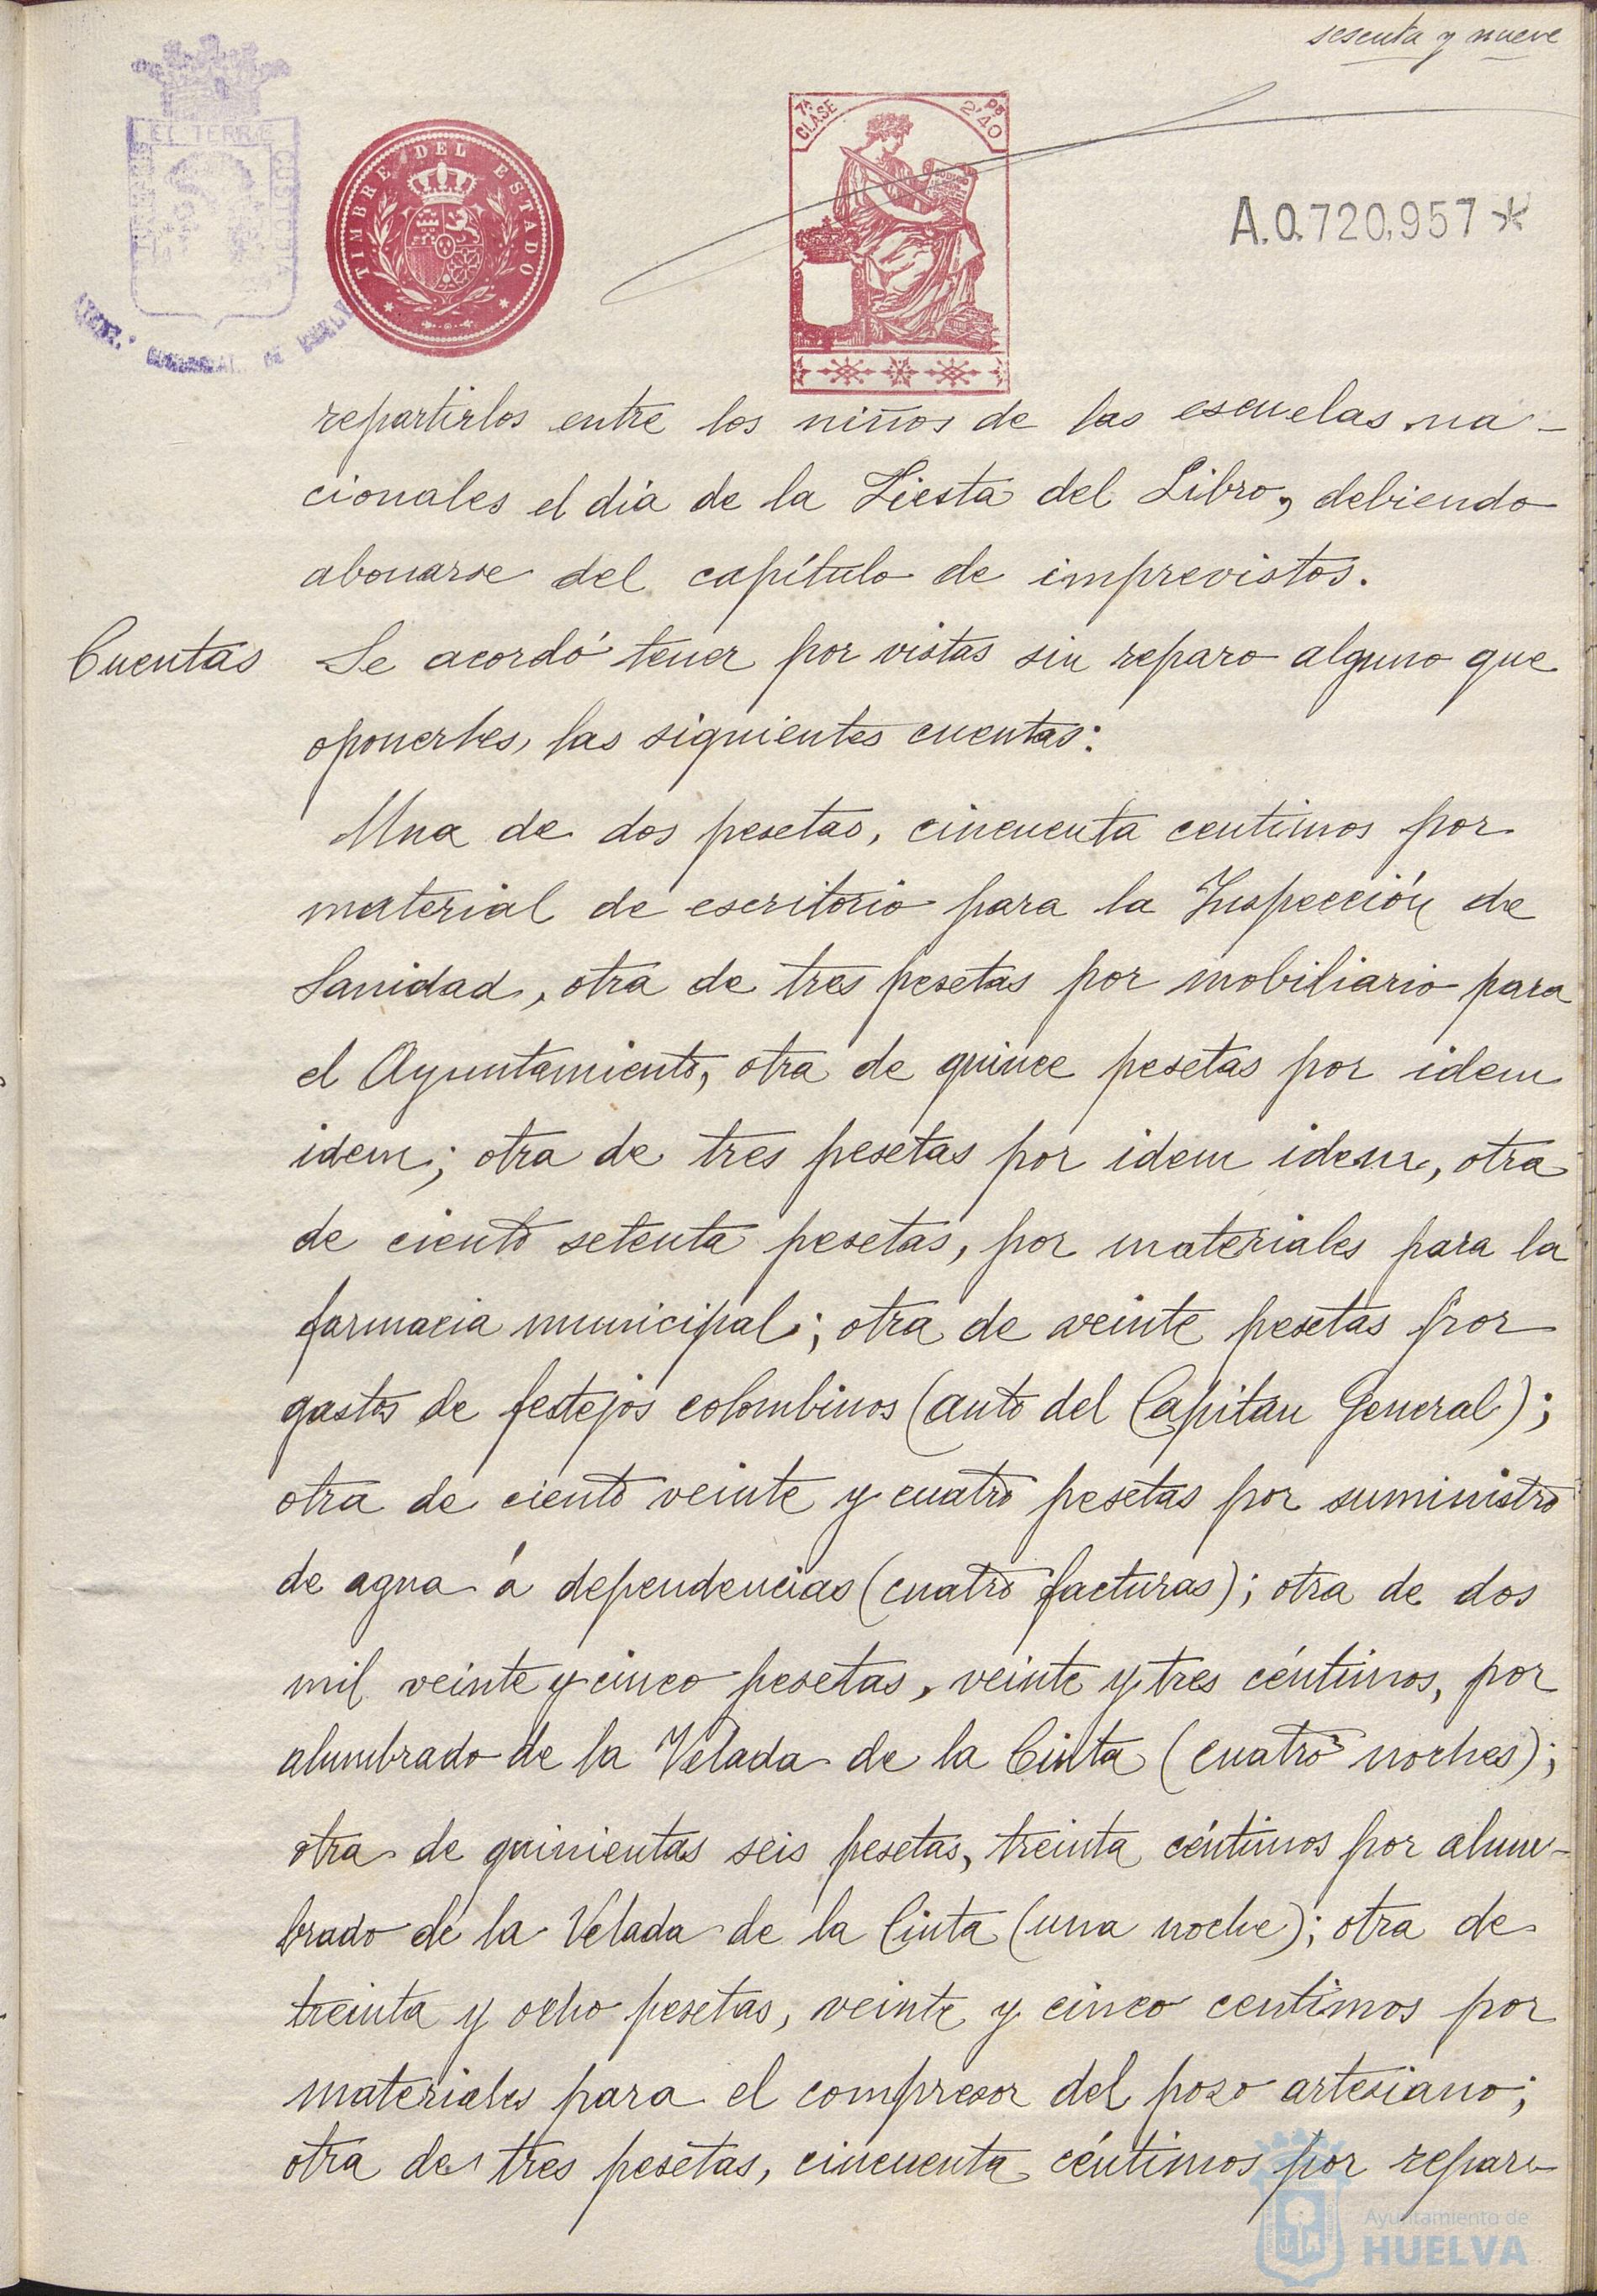 sesenta y nueve
TIMBRE DEL ESTADO
7ª CLASE
2'40 Ps
A.0.720.957 *
repartirlos entre los niños de las escuelas na-
cionales el día de la Fiesta del Libro, debiendo
abonarse del capítulo de imprevistos.
Cuentas Se acordó tener por vistas sin reparo alguno que
oponerles, las siguientes cuentas:
Una de dos pesetas, cincuenta centimos por
material de escritorio para la Inspección de
Sanidad, otra de tres pesetas por mobiliario para
el Ayuntamiento, otra de quince pesetas por idem
idem; otra de tres pesetas por idem idem, otra
de ciento setenta pesetas, por materiales para la
farmacia municipal; otra de veinte pesetas por
gastos de festejos colombinos (auto del Capitan General);
otra de ciento veinte y cuatro pesetas por suministro
de agua á dependencias (cuatro facturas); otra de dos
mil veinte y cinco pesetas, veinte y tres céntimos, por
alumbrado de la Velada de la Cinta (cuatro noches);
otra de quinientas seis pesetas, treinta céntimos por alum-
brado de la Velada de la Cinta (una noche); otra de
treinta y ocho pesetas, veinte y cinco centimos por
materiales para el compresor del pozo artesiano;
otra de tres pesetas, cincuenta céntimos por repara-
Ayuntamiento de
HUELVA